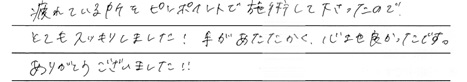 疲れている所をピンポイントで施術して下さったので、
とてもスッキリしました！手があたたかく、心地も良かったです。
ありがとうございました!!